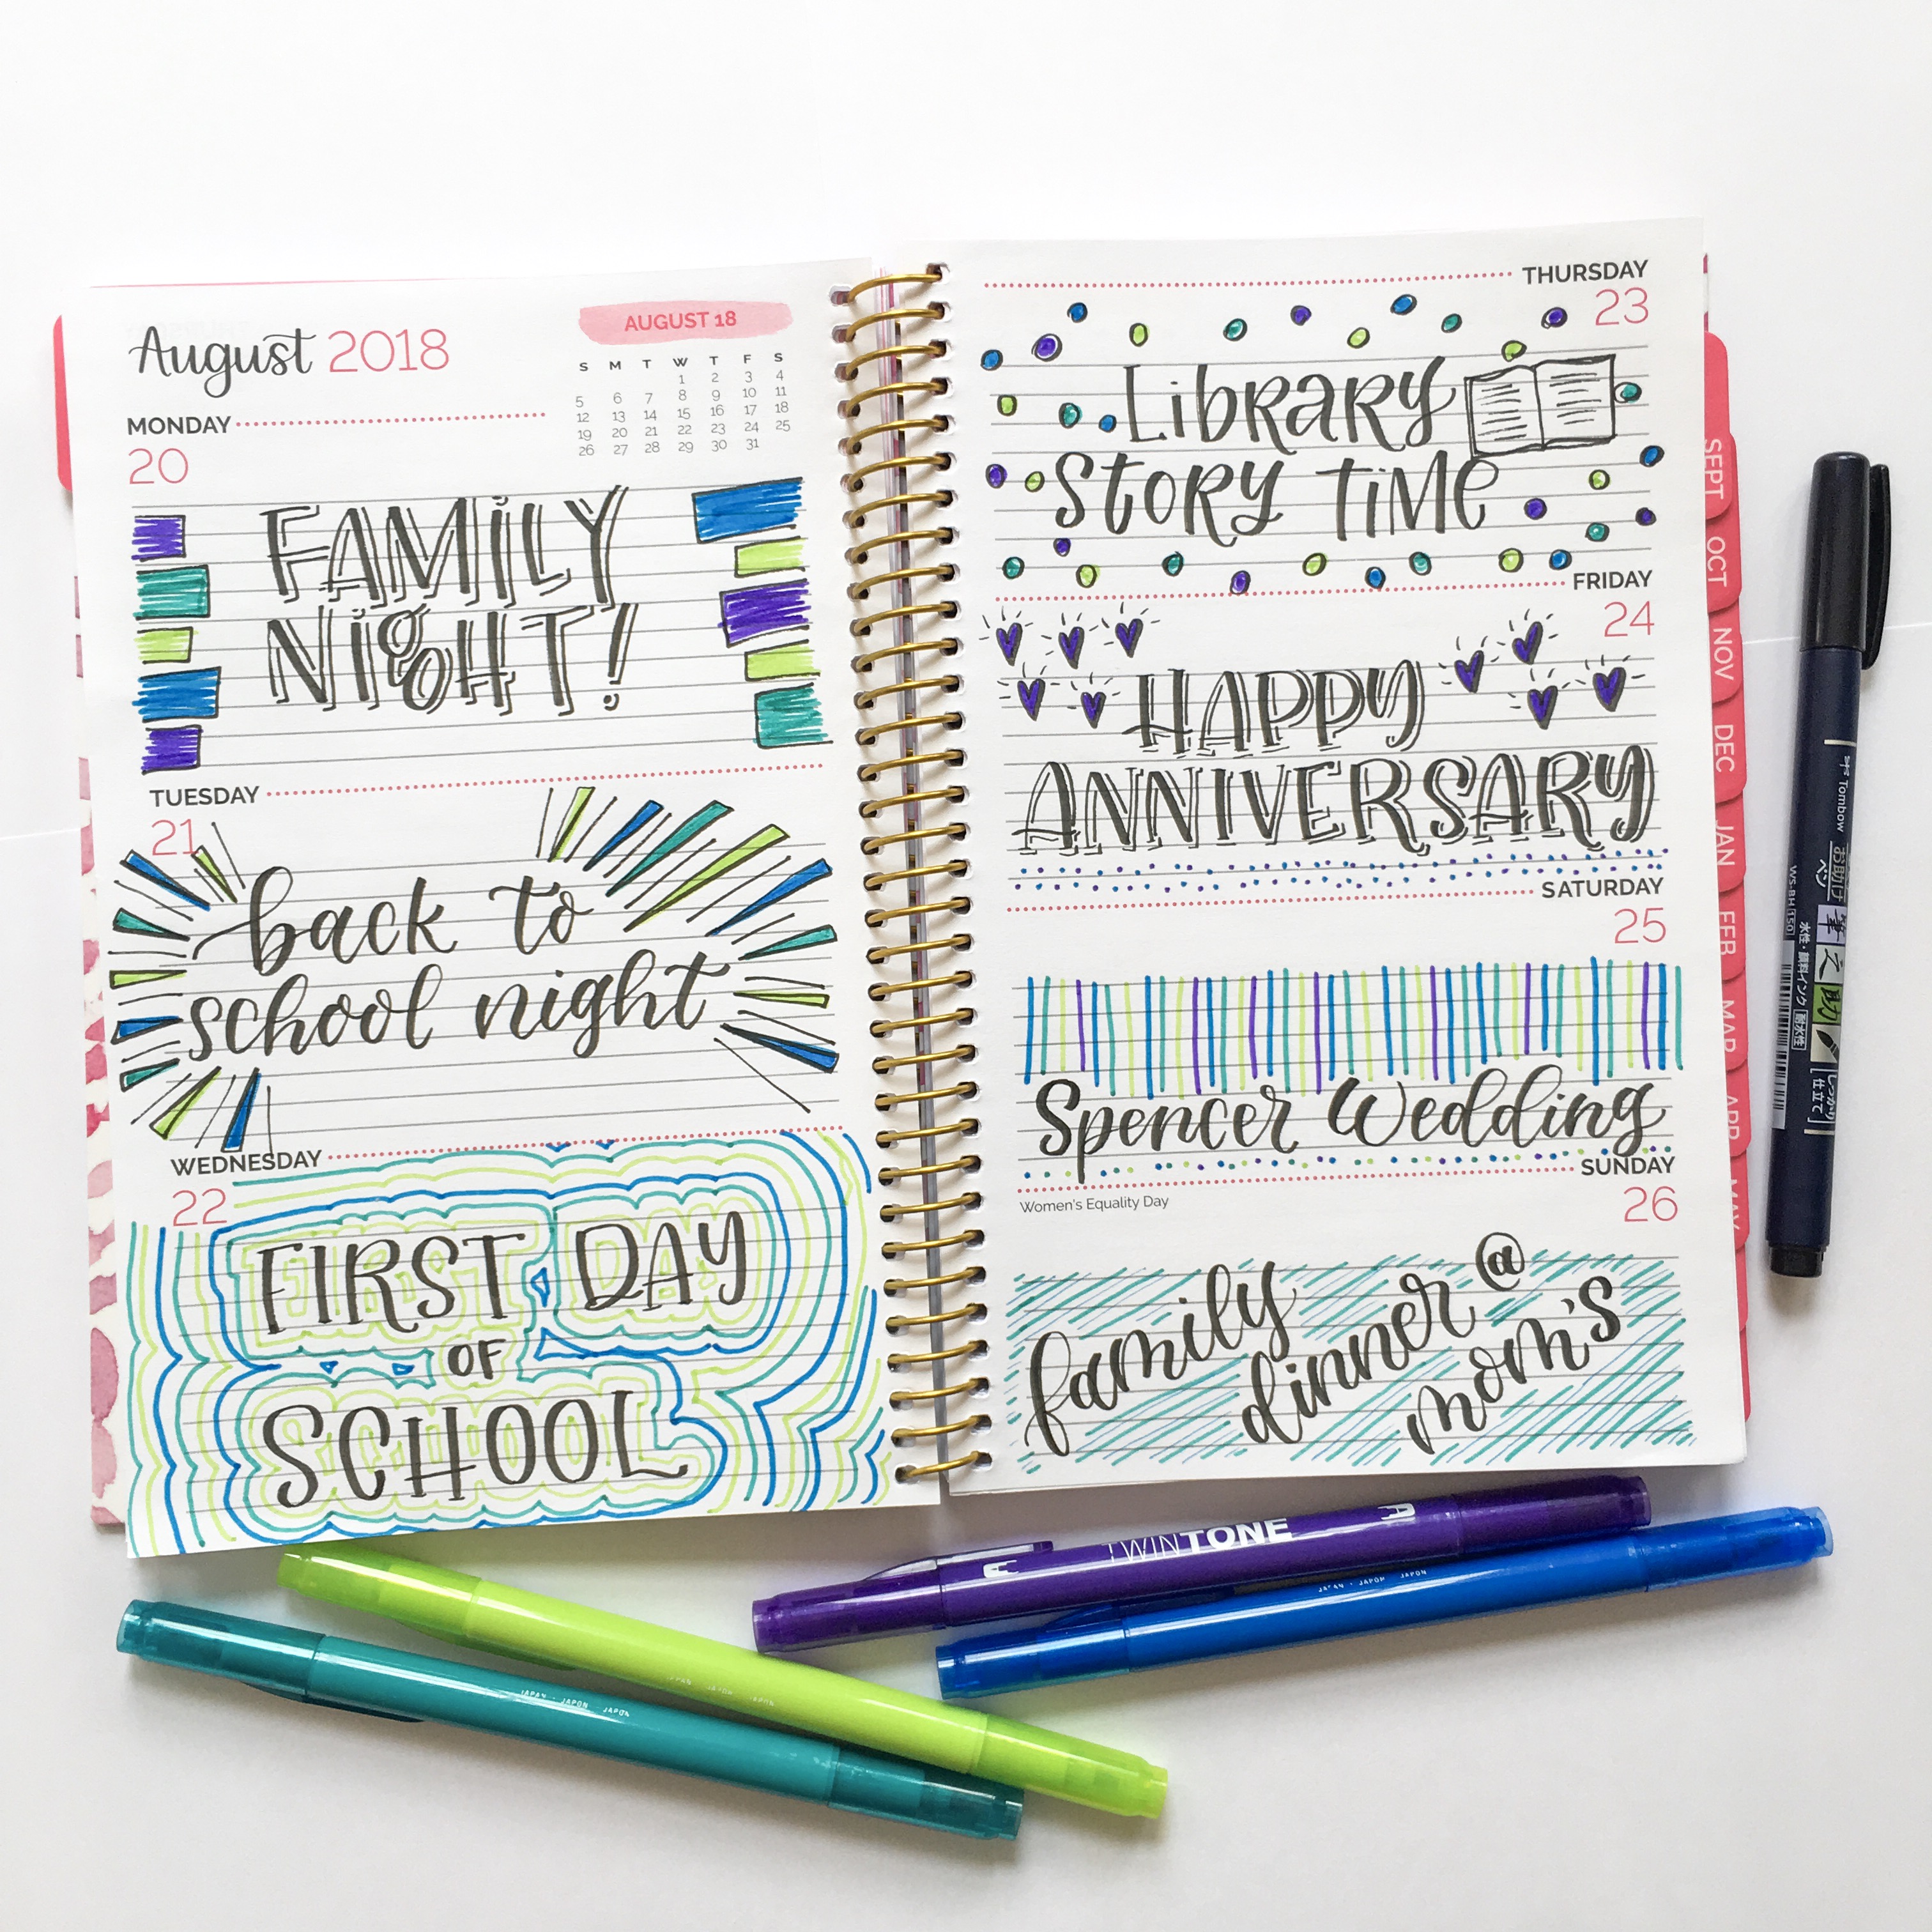 August 2018
AUGUST 18
S M T W T F S
1 2 3 4
5 6 7 8 9 10 11
12 13 14 15 16 17 18
19 20 21 22 23 24 25
26 27 28 29 30 31
MONDAY
20
FAMILY
NIGHT!
TUESDAY
21
back to
school night
WEDNESDAY
22
FIRST DAY
OF
SCHOOL
THURSDAY
23
LibRARY
STORY TIME
FRIDAY
24
HAPPY
ANNIVERSARY
SATURDAY
25
Spencer Wedding
SUNDAY
26
Women's Equality Day
family
dinner @
mom's
SEPT
OCT
NOV
DEC
JAN
FEB
MAR
APR
MAY
Tombow
WS-BH 150
水性・顔料インク 耐水性
しっかり
仕立て
TWINTONE
JAPAN · JAPON JAPON
JAPAN · JAPON JAPON
JAPAN JAPON JAPON